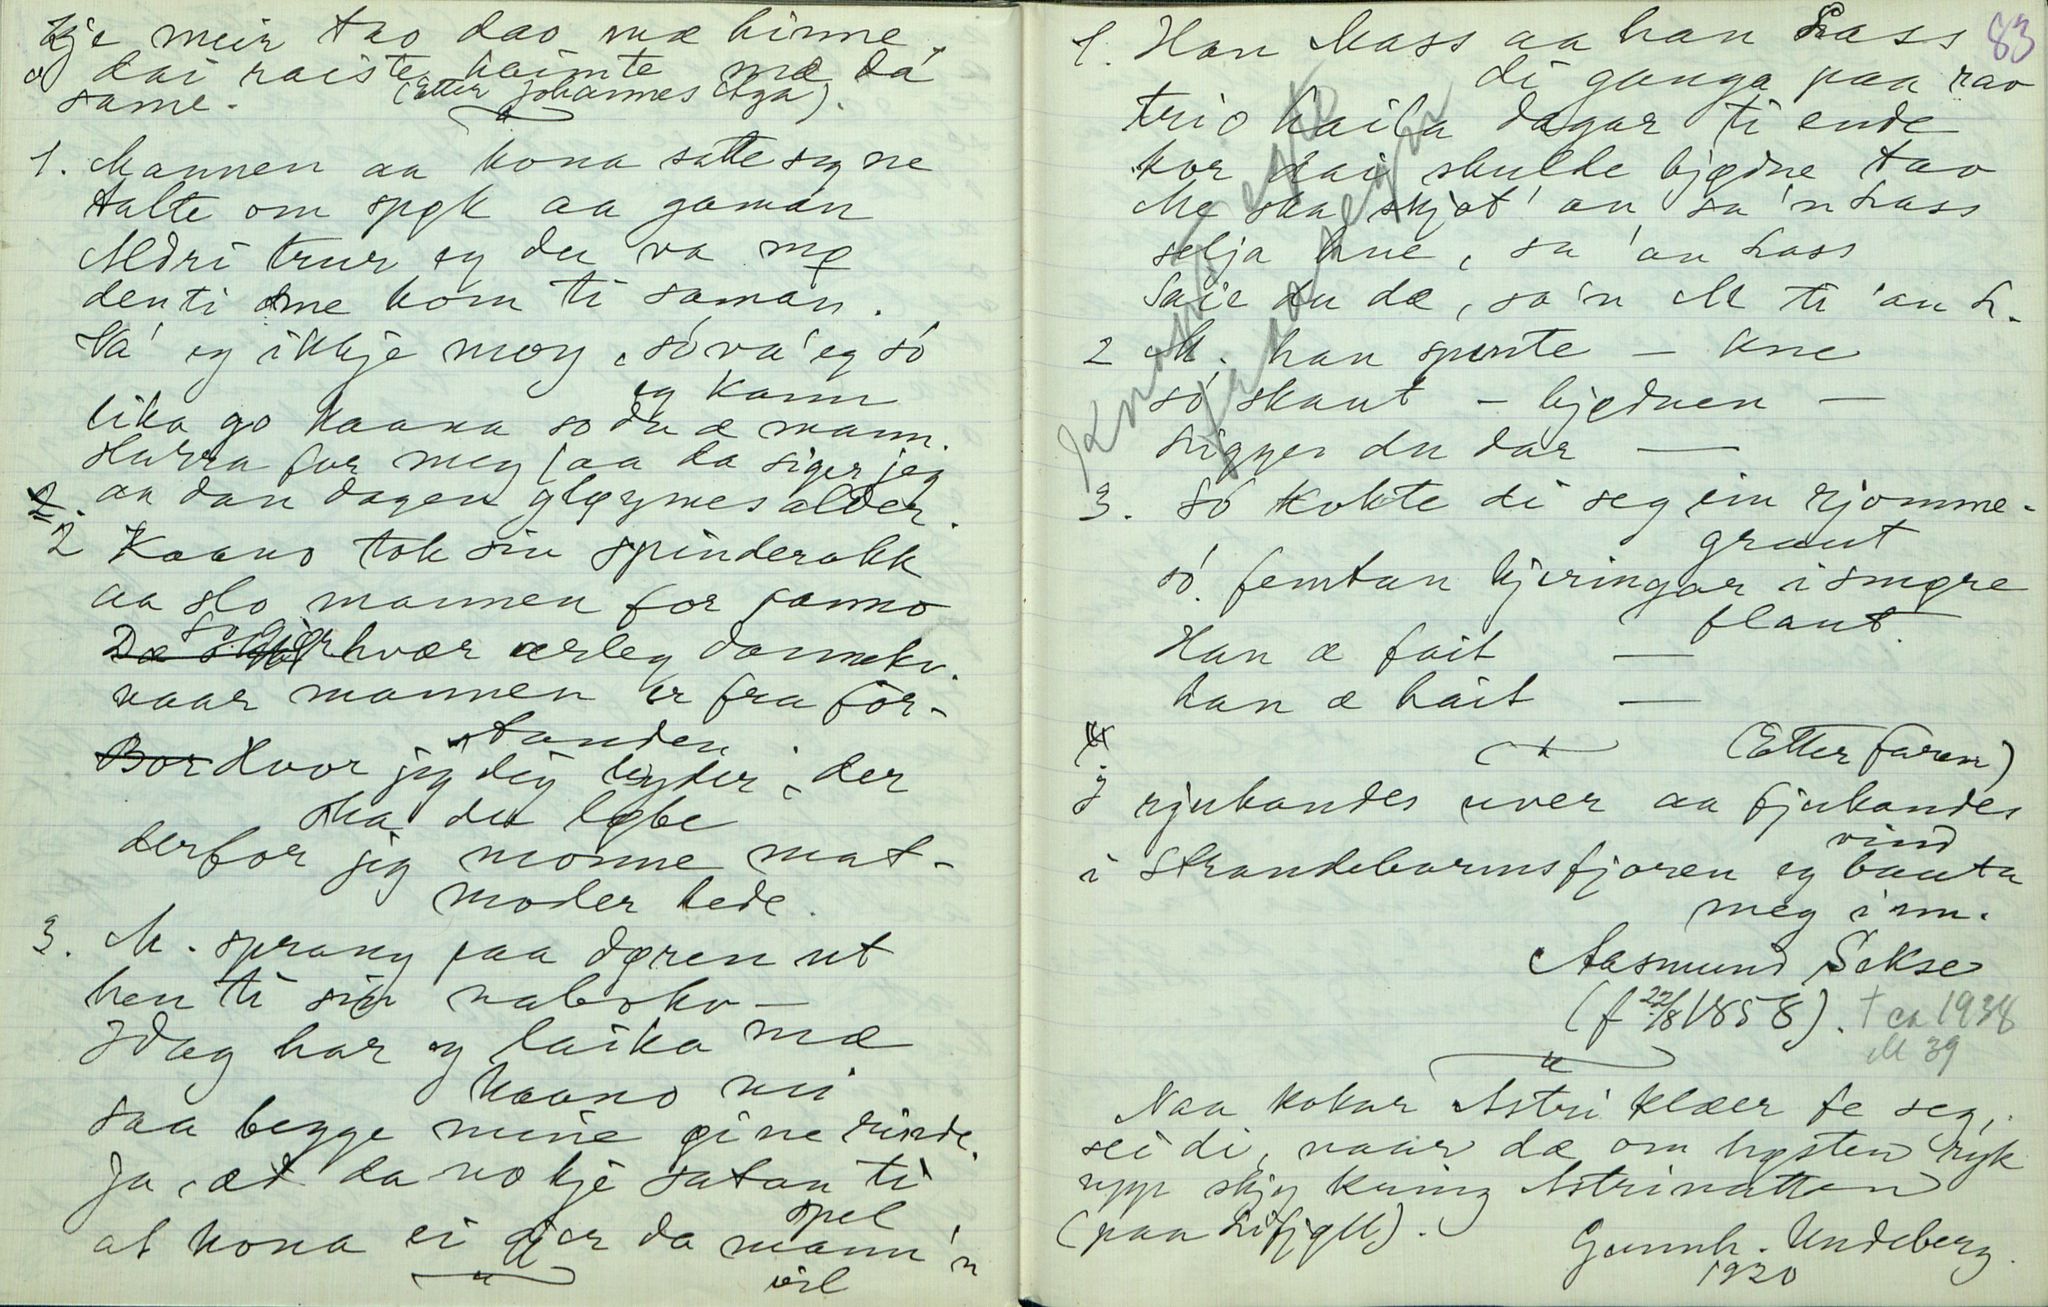 kje meir tao dao mæ hinne,
o dai raiste haimte mæ då
same. (Etter Johannes Aga).
1. Mannen aa kona satte seg ne
talte om spøk aa gaman
Aldri trur eg du va mø
den ti me kom ti saman.
Va' eg ikkje møy, så va' eg så
lika go kaana so du æ mann.
eg kann
Hurra for meg (aa da siger jeg
aa dan dagen gløymes alder.
2 Kaano tok sin spinderokk
aa slo mannen for panno
So gjer hvær ærleg danneko.
naar mannen er fra for-
standen
Hvor jeg dig byder, der
ska du løbe
derfor jeg monne mat-
moder hede.
3. M. sprang paa døren ut
hen ti sin nabosko —
Idag har eg laika mæ
kaano mi
saa begge mine øine rinde.
Ja, æd da no kje satan ti
spel
at kona ei gjer da mann'n
vil
83
1. Han Mass aa han Lass
di ganga paa rao
trio haila dagar ti ende
kor dai skulde bjødne tao
Me ska skjot' an sa'n Lass
selja hue, sa 'an Lass
Saie du dæ, sa'n M ti 'an L.
2 M. han spente — kne
så skaut — bjødnen —
Ligger du dar —
3. Så kokte di seg ein rjomme-
graut
så femtan kjeringar i smøre
flaut.
Han æ fait —
han æ hait —
(Etter faren)
I rjukandes uver aa fjukandes
vind
i Strandebarmsfjoren eg bauta
meg inn.
Aasmund Sekse
(f 22/8 1858). † ca 1938
M 39
Naa kokar Astri klæer fe seg,
sei di, naar dæ om høsten ryk
upp skjy kring Astrinatten
(paa Lifjøll).
Gunnh. Undeberg.
1920